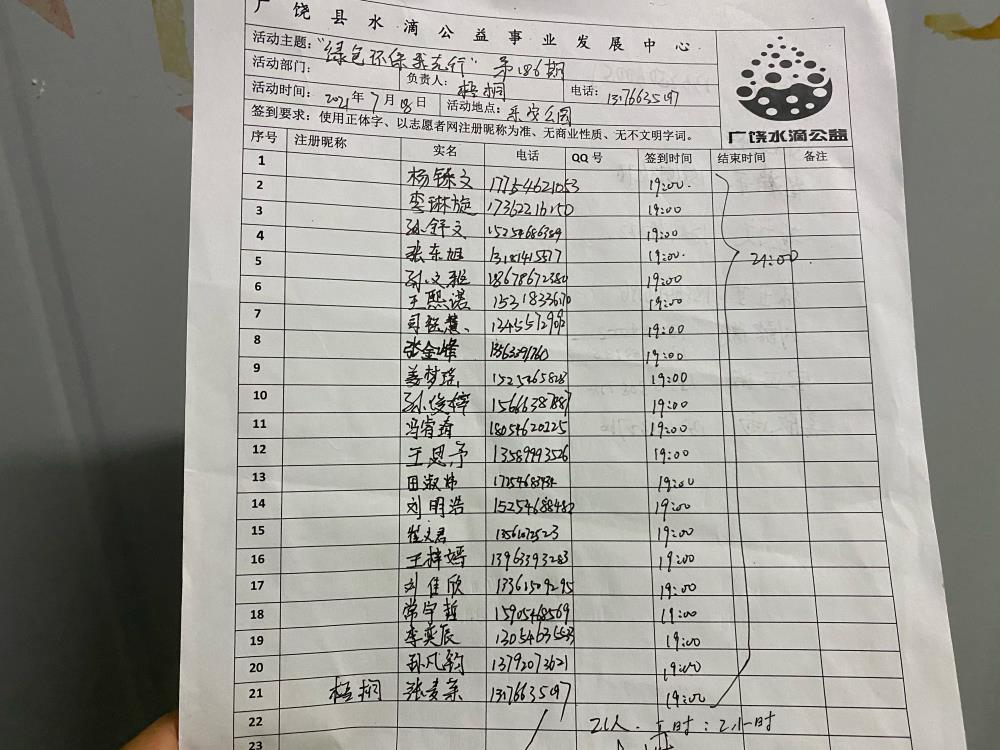 广饶县水滴公益事业发展中心
活动主题：“绿色环保我先行”第186期
活动部门： 负责人：梧桐 电话：13176635097
活动时间：2021年7月18日 活动地点：乐安公园
签到要求：使用正体字、以志愿者网注册昵称为准、无商业性质、无不文明字词。
广饶水滴公益
序号 注册昵称 实名 电话 QQ号 签到时间 结束时间 备注
1 杨铄文 17754621053 19:00
2 李琳旋 17362216150 19:00
3 孙舒文 15254686389 19:00
4 张东旭 13181415577 19:00 21:00
5 孙文雅 18678672380 19:00
6 王熙诺 15318336170 19:00
7 19:00
8 张金峰 19:00
9 姜梦瑶 19:00
10 孙俊梓 15666387887 19:00
11 冯睿琦 18054620225 19:00
12 王思予 13589993526 19:00
13 田淑炜 19:00
14 刘明浩 15254688480 19:00
15 崔文君 19:00
16 王梓嫣 13963393283 19:00
17 刘佳欣 13361509295 19:00
18 常宇哲 15905468569 19:00
19 李奕辰 13054635533 19:00
20 孙凡钧 13792073621 19:00
21 梧桐 13176635097 19:00
22 21人. 工时：2小时
23